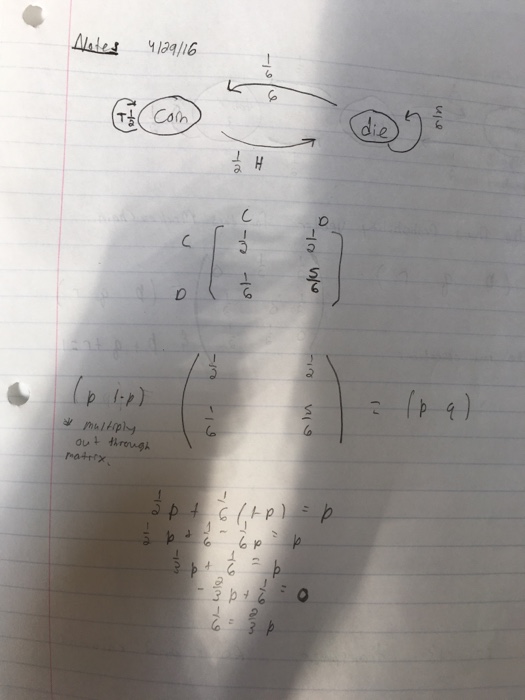 Notes 4/29/16
1/6
6
T 1/2 Coin die 5/6
1/2 H
C D
C [ 1/2 1/2 ]
D [ 1/6 5/6 ]
(p 1-p) ( 1/2 1/2 ) = (p q)
( 1/6 5/6 )
* multiply
out through
matrix.
1/2 p + 1/6 (1-p) = p
1/2 p + 1/6 - 1/6 p = p
1/3 p + 1/6 = p
- 2/3 p + 1/6 = 0
1/6 = 2/3 p